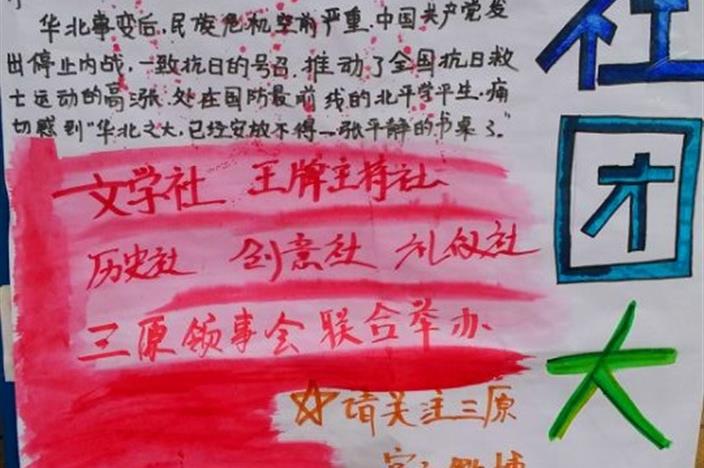 华北事变后,民族危机空前严重.中国共产党发
出停止内战,一致抗日的号召.推动了全国抗日救
士运动的高涨.处在国防最前线的北平学平生.痛
切感到"华北之大,已经安放不得一张平静的书桌了。"
文学社 王牌主持社
历史社 创意社 礼仪社
三原领事会联合举办
☆请关注三原
微博
社
团
大